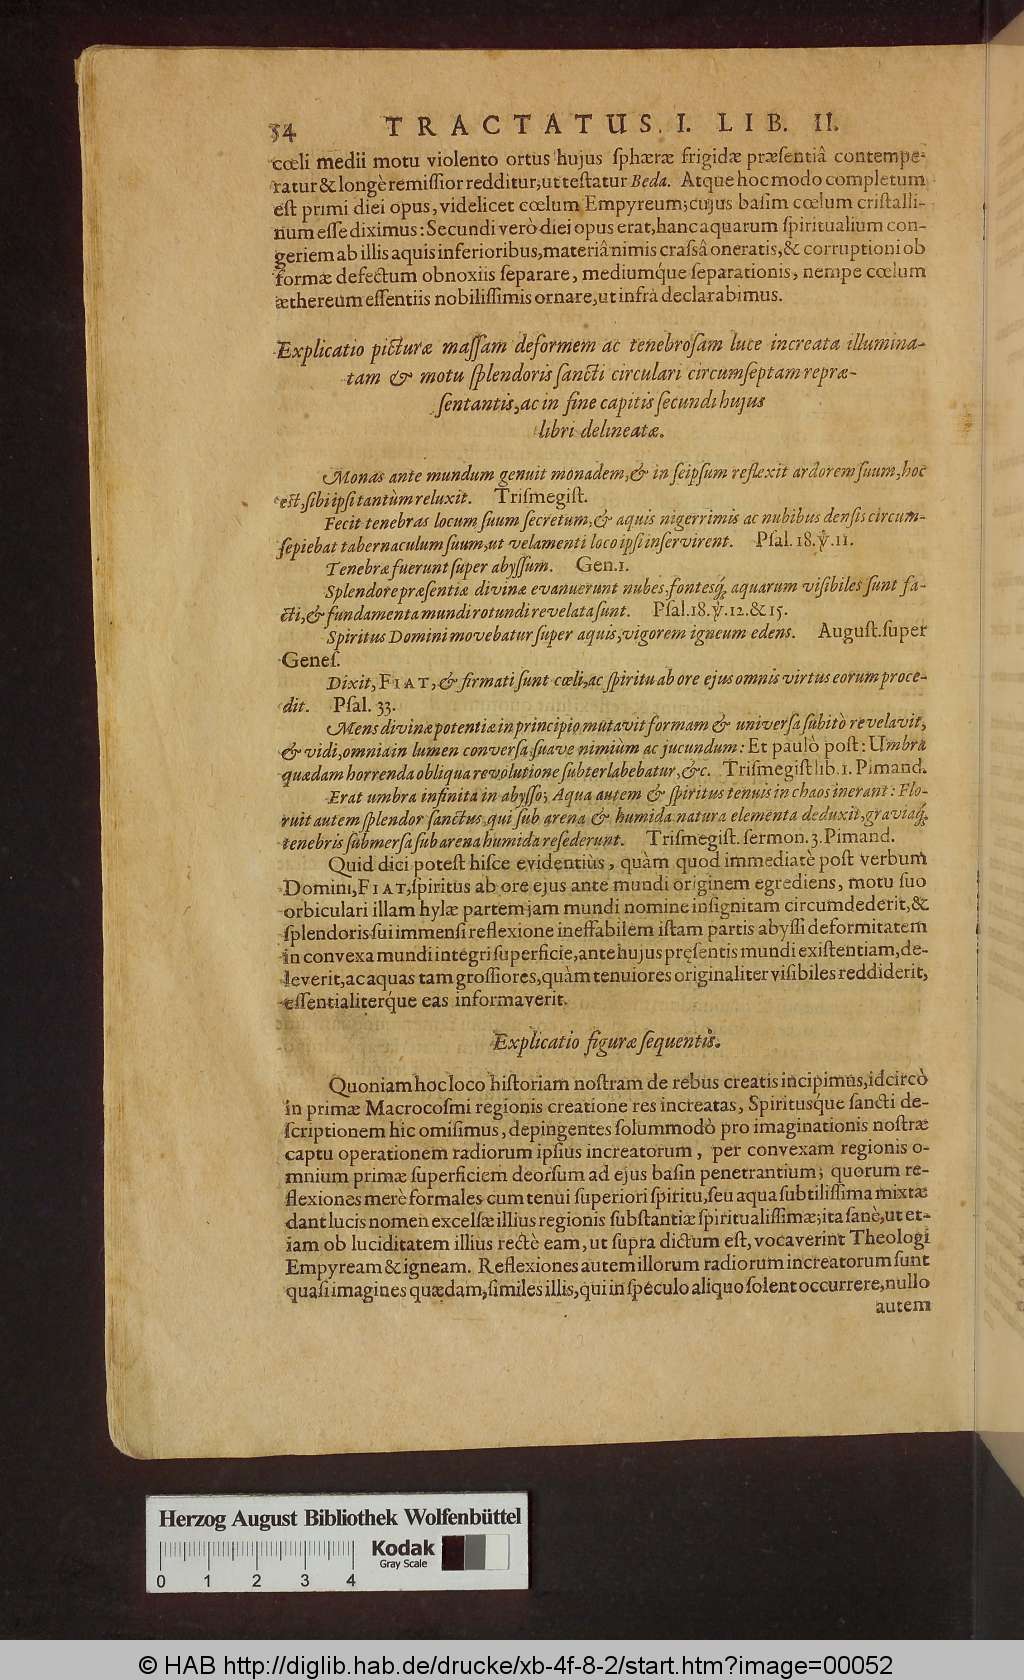 54 TRACTATUS. I. LIB. II.
cœli medii motu violento ortus hujus ſphæræ frigidæ præſentiâ contempe-
ratur & longè remiſſior redditur, ut teſtatur Beda. Atque hoc modo completum
eſt primi diei opus, videlicet cœlum Empyreum; cujus baſim cœlum criſtalli-
num eſſe diximus: Secundi verò diei opus erat, hanc aquarum ſpiritualium con-
geriem ab illis aquis inferioribus, materiâ nimis craſsâ oneratis, & corruptioni ob
formæ defectum obnoxiis ſeparare, mediumq́ue ſeparationis, nempe cœlum
æthereum eſſentiis nobiliſſimis ornare, ut infrà declarabimus.
Explicatio picturæ maſſam deformem ac tenebroſam luce increata illumina-
tam & motu ſplendoris ſancti circulari circumſeptam repræ-
ſentantis, ac in fine capitis ſecundi hujus
libri delineatæ.
Monas ante mundum genuit monadem, & in ſeipſum reflexit ardorem ſuum, hoc
eſt, ſibi ipſi tantùm reluxit. Triſmegiſt.
Fecit tenebras locum ſuum ſecretum, & aquis nigerrimis ac nubibus denſis circum-
ſepiebat tabernaculum ſuum, ut velamenti loco ipſi inſervirent. Pſal. 18. ℣. 11.
Tenebræ fuerunt ſuper abyſſum. Gen. 1.
Splendore præſentiæ divinæ evanuerunt nubes, fontesq́; aquarum viſibiles ſunt fa-
cti, & fundamenta mundi rotundi revelata ſunt. Pſal. 18. ℣. 12. & 15.
Spiritus Domini movebatur ſuper aquis, vigorem igneum edens. Auguſt. ſuper
Geneſ.
Dixit, FIAT, & firmati ſunt cœli, ac ſpiritu ab ore ejus omnis virtus eorum proce-
dit. Pſal. 33.
Mens divinæ potentiæ in principio mutavit formam & univerſa ſubitò revelavit,
& vidi, omnia in lumen converſa, ſuave nimiùm ac jucundum: Et paulò poſt: Umbra
quædam horrenda obliqua revolutione ſubterlabebatur, &c. Triſmegiſt lib. 1. Pimand.
Erat umbra infinita in abyſſo; Aqua autem & ſpiritus tenuis in chaos inerant: Flo-
ruit autem ſplendor ſanctus, qui ſub arena & humida natura elementa deduxit, graviaq́;
tenebris ſubmerſa ſub arena humida reſederunt. Triſmegiſt. ſermon. 3. Pimand.
Quid dici poteſt hiſce evidentiùs, quàm quod immediatè poſt verbum
Domini, FIAT, ſpiritus ab ore ejus ante mundi originem egrediens, motu ſuo
orbiculari illam hylæ partem jam mundi nomine inſignitam circumdederit, &
ſplendoris ſui immenſi reflexione ineffabilem iſtam partis abyſſi deformitatem
in convexa mundi integri ſuperficie, ante hujus pręſentis mundi exiſtentiam, de-
leverit, ac aquas tam groſſiores, quàm tenuiores originaliter viſibiles reddiderit,
eſſentialiterq́ue eas informaverit.
Explicatio figuræ ſequentis.
Quoniam hoc loco hiſtoriam noſtram de rebus creatis incipimus, idcircò
in primæ Macrocoſmi regionis creatione res increatas, Spiritusq́ue ſancti de-
ſcriptionem hic omiſimus, depingentes ſolummodò pro imaginationis noſtræ
captu operationem radiorum ipſius increatorum, per convexam regionis o-
mnium primæ ſuperficiem deorſum ad ejus baſin penetrantium; quorum re-
flexiones merè formales cum tenui ſuperiori ſpiritu, ſeu aqua ſubtiliſſima mixtæ
dant lucis nomen excelſæ illius regionis ſubſtantiæ ſpiritualiſſimæ; ita ſanè, ut et-
iam ob luciditatem illius rectè eam, ut ſupra dictum eſt, vocaverint Theologi
Empyream & igneam. Reflexiones autem illorum radiorum increatorum ſunt
quaſi imagines quædam, ſimiles illis, qui in ſpeculo aliquo ſolent occurrere, nullo
autem
Herzog August Bibliothek Wolfenbüttel
Kodak
Gray Scale
0 1 2 3 4
© HAB http://diglib.hab.de/drucke/xb-4f-8-2/start.htm?image=00052